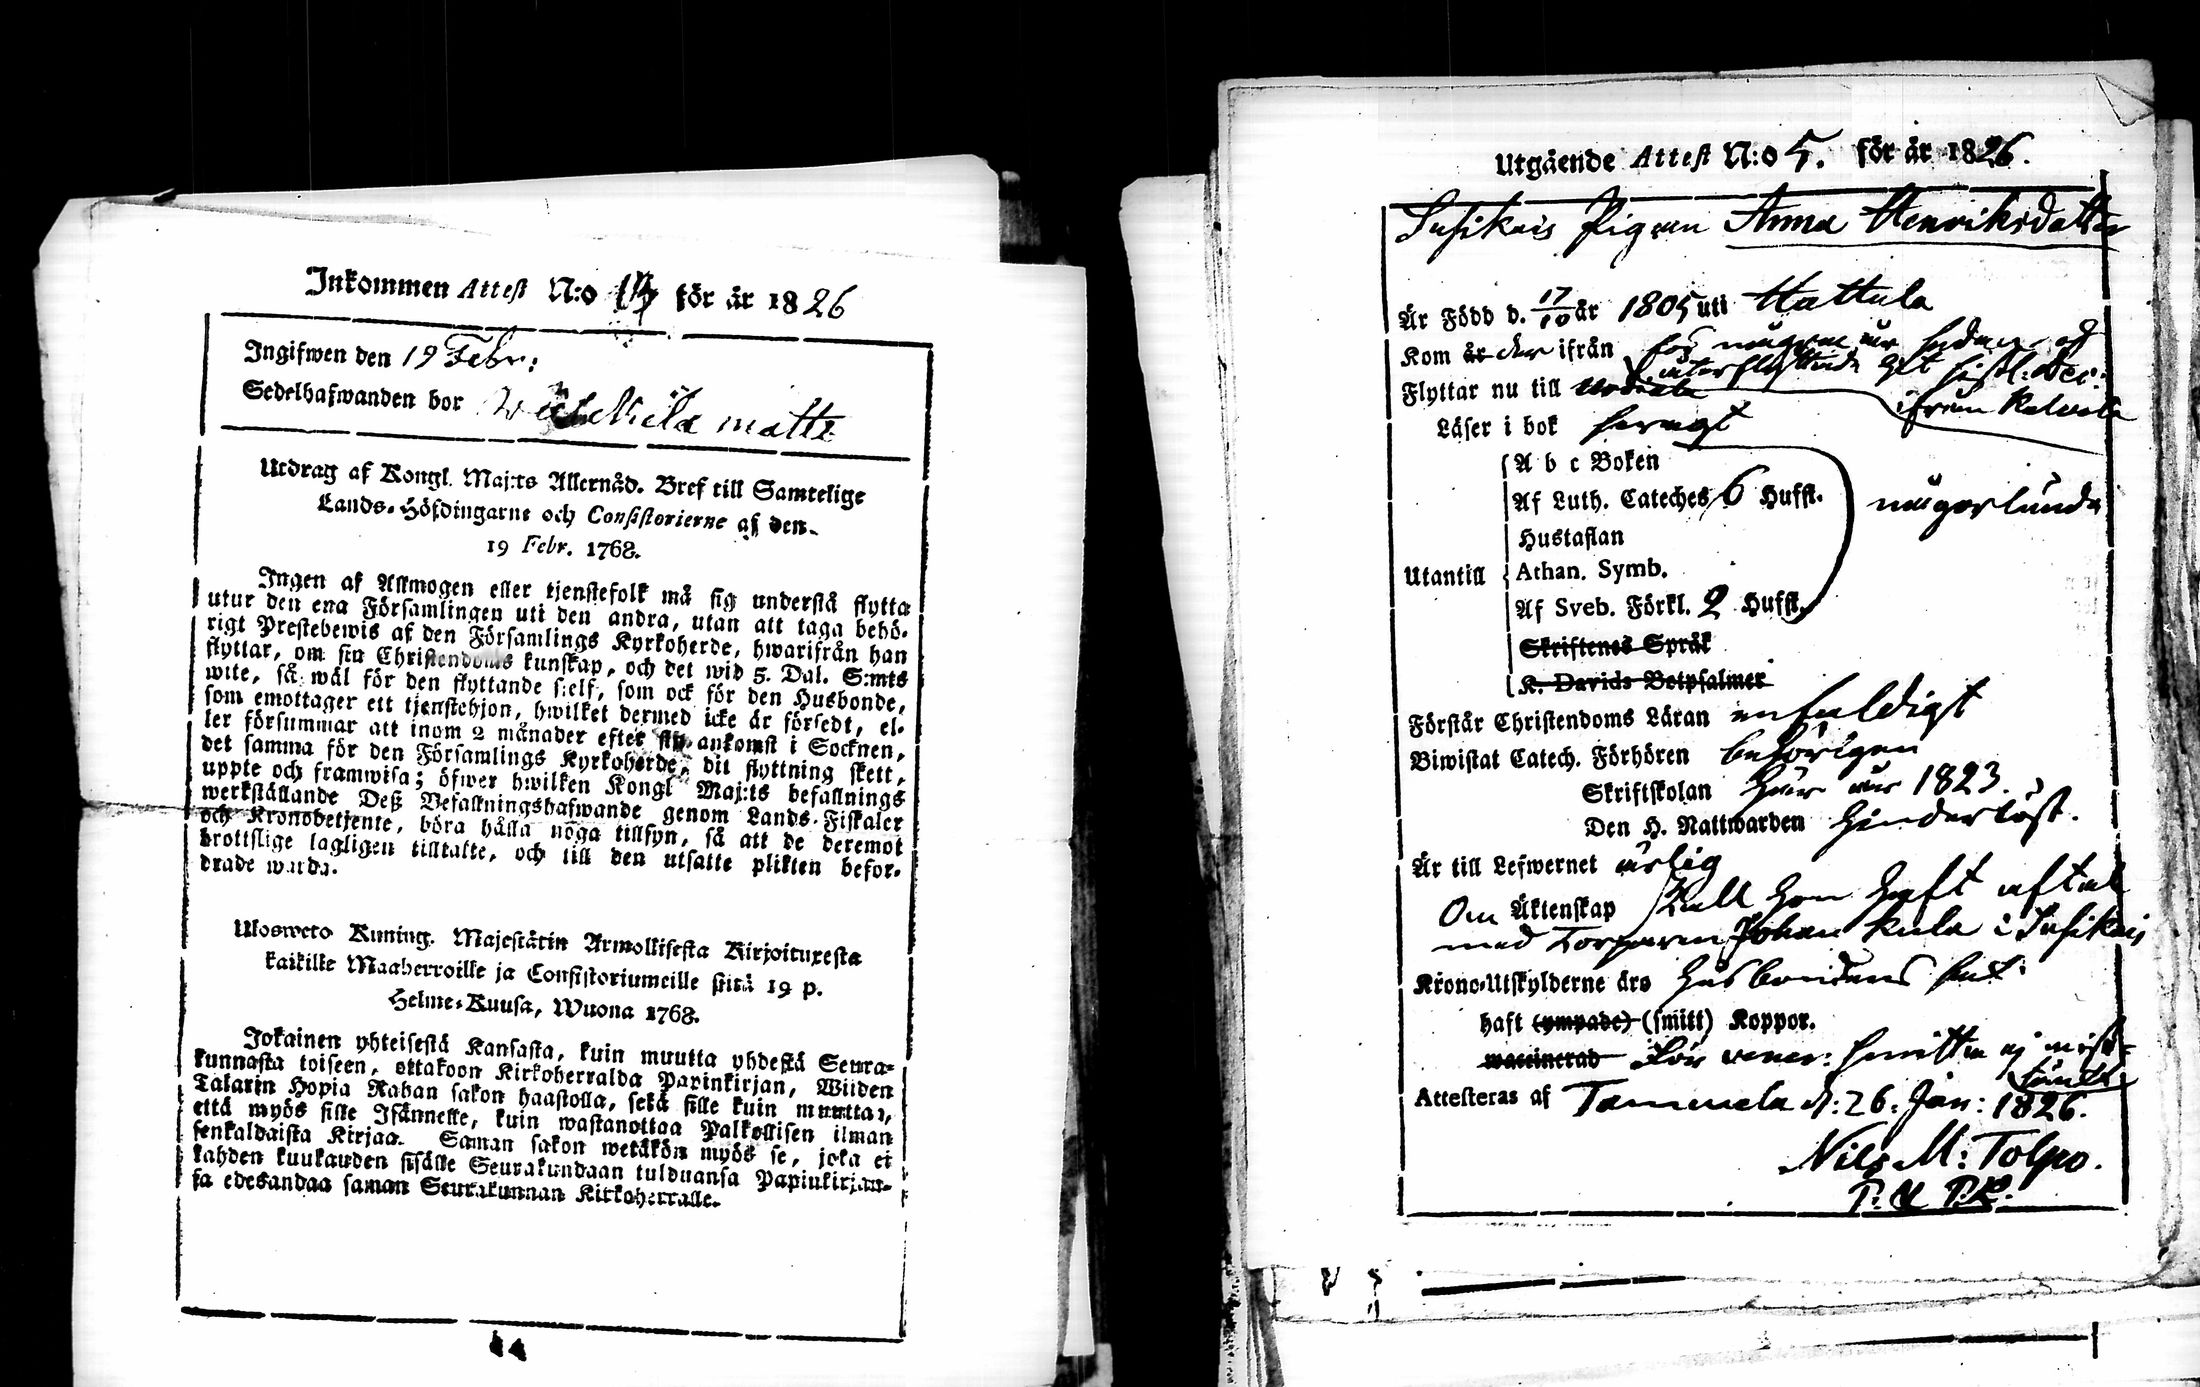 Inkommen Attest N:o för år 1826
Ingifwen den 19 Febr:
Sedelhafwanden bor matti
Utdrag af Kongl. Maj:ts Allernåd. Bref till Samtelige
Lands-Höfdingarne och Consistorierne af den
19 Febr. 1768.
Ingen af Allmogen eller tjenstefolk må sig understå flytta
utur den ena Församlingen uti den andra, utan att taga behö-
rigt Prestebewis af den Församlings Kyrkoherde, hwarifrån han
flyttar, om sin Christendoms kunskap, och det wid 5. Dal. S:mts
wite, så wäl för den flyttande sjelf, som ock för den Husbonde,
som emottager ett tjenstehjon, hwilket dermed icke är försedt, el-
ler försummar att inom 2 månader efter sin ankomst i Socknen,
det samma för den Församlings Kyrkoherde, dit flyttning skett,
uppte och framwisa; öfwer hwilken Kongl Maj:ts befallnings
werkställande Deß Befallningshafwande genom Lands-Fiskaler
och Kronobetjente, böra hålla noga tillsyn, så att de deremot
brottslige lagligen tilltalte, och till den utsatte plikten befor-
drade warda.
Ulosweto Kuning. Majestätin Armollisesta Kirjoituxesta
kaikille Maaherroille ja Consistoriumeille siitä 19 p.
Helme-Kuusa, Wuona 1768.
Jokainen yhteisestä Kansasta, kuin muutta yhdestä Seura-
kunnasta toiseen, ottakoon Kirkoherralda Papinkirjan, Wiiden
Talarin Hopia Rahan sakon haastolla, sekä sille kuin muuttaa,
että myös sille Isännelle, kuin wastanottaa Palkollisen ilman
senkaldaista Kirjaa. Saman sakon wetäkön myös se, joka ei
kahden kuukauden sisälle Seurakundaan tulduansa Papinkirjan-
sa edesandaa saman Seurakunnan Kirkoherralle.
Utgående Attest N:o 5. för år 1826.
Susikais Pigan Anna Henriksdotter
Är Född d. 17/10 år 1805 uti Hattula
Kom år der ifrån för några år sedan, och
återflyttade hit sistl: Dec:
Flyttar nu till Urdiala ifrån Kalvola
Läser i bok swagt
A b c Boken
Af Luth. Cateches 6 Hufst. någorlunda
Hustaflan
Utantill Athan. Symb.
Af Sveb. Förkl. 2 Hufst.
Skriftenes Språk
K. Davids Botpsalmer
Förstår Christendoms Läran enfaldigt
Biwistat Catech. Förhören behörigen
Skriftskolan här år 1823.
Den H. Nattwarden hinderlöst.
Är till Lefwernet ärlig
Om Äktenskap skall hon haft aftal
med Torparen Johan Kula i Susikais
Krono-Utskylderne äro husbondens sak
haft (ympade) (smitt) Koppor.
waccinerad För vener: smitta ej miss-
tänkt
Attesteras af Tammela d: 26. Jan: 1826.
Nils M: Tolpo.